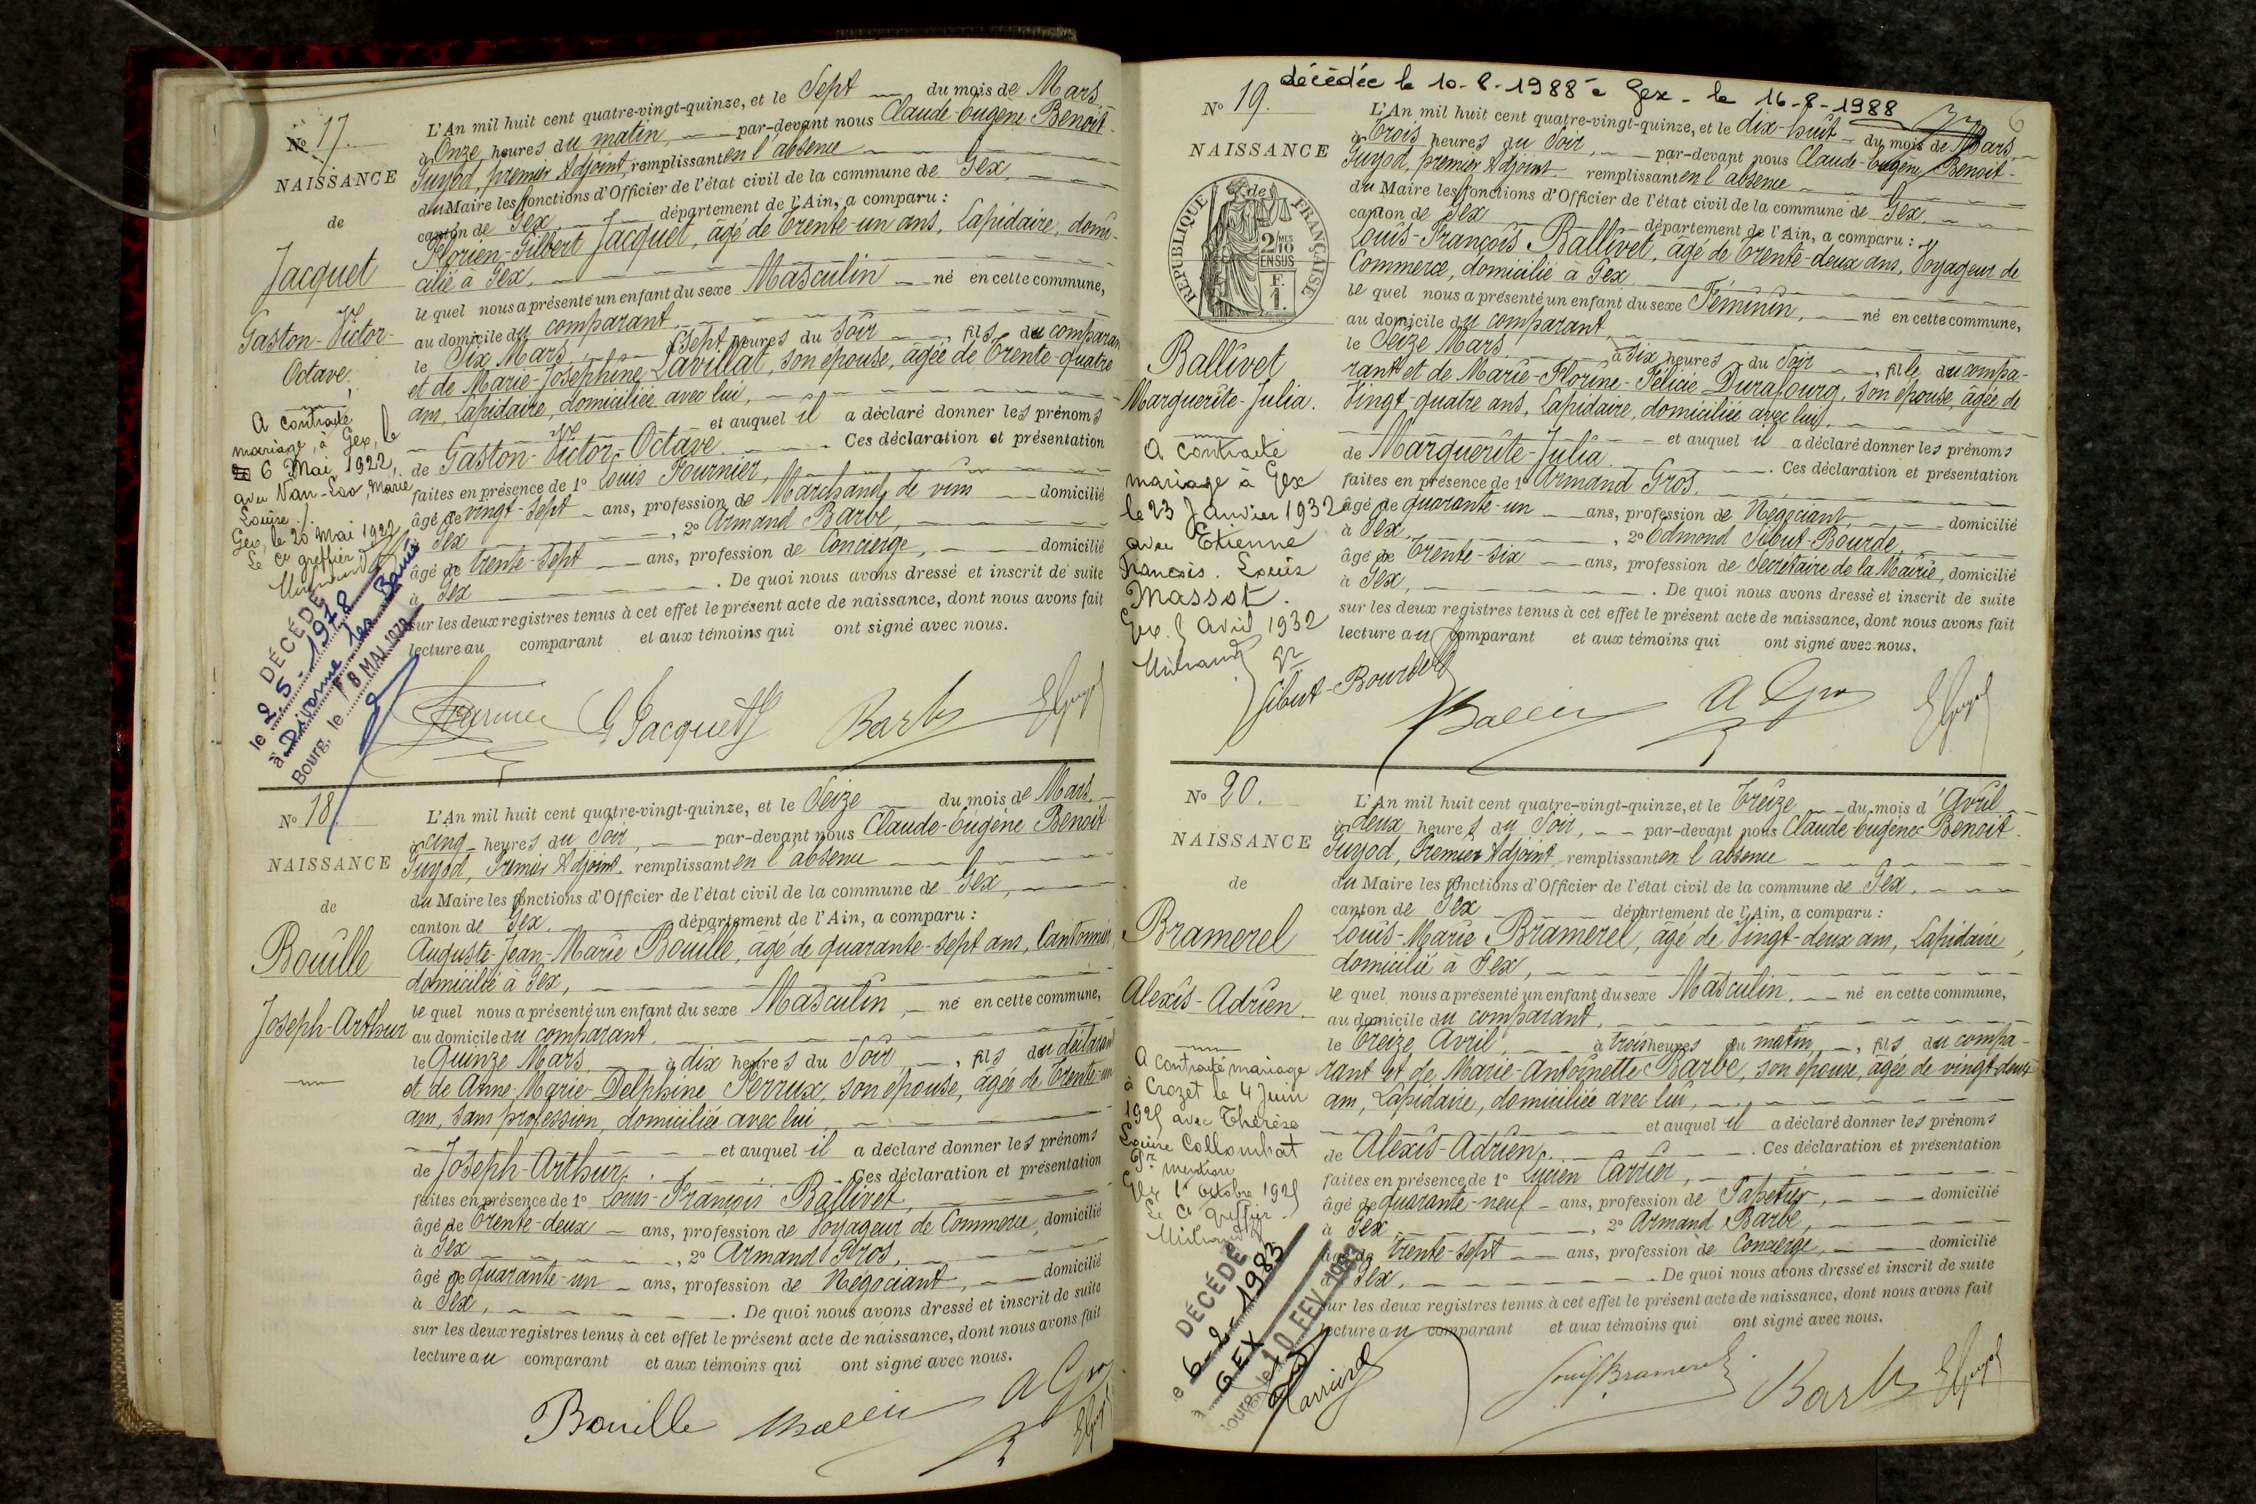 No 17.
NAISSANCE
de
Jacquet
Gaston-Victor-
Octave.
A contracté
mariage, à Gex, le
6 Mai 1922,
avec Van-Loo, Marie
Louise.
Gex, le 20 Mai 1922
Le Ce greffier
DÉCÉDÉ
le 2-5-1978
à Divonne les Bains
Bourg, le 8 MAI 1978
L'An mil huit cent quatre-vingt-quinze, et le Sept du mois de Mars
à Onze heures du matin, par-devant nous Claude-Eugène Benoit-
Guyod, premier Adjoint, remplissant en l'absence
du Maire les fonctions d'Officier de l'état civil de la commune de Gex,
canton de Gex, département de l'Ain, a comparu :
Florien-Gilbert Jacquet, âgé de Trente-un ans, Lapidaire, domi-
cilié à Gex,
lequel nous a présenté un enfant du sexe Masculin né en cette commune,
au domicile du comparant
le Six Mars à Sept heures du Soir fils du comparan
et de Marie-Joséphine Lavillat, son épouse, âgée de Trente-quatre
ans, Lapidaire, domiciliée avec lui,
et auquel il a déclaré donner les prénoms
de Gaston-Victor-Octave. Ces déclaration et présentation
faites en présence de 1o Louis Fournier,
âgé de vingt-sept ans, profession de Marchand de vins domicilié
à Gex, 2o Armand Barbe,
âgé de trente-sept ans, profession de Concierge, domicilié
à Gex. De quoi nous avons dressé et inscrit de suite
sur les deux registres tenus à cet effet le présent acte de naissance, dont nous avons fait
lecture au comparant et aux témoins qui ont signé avec nous.
G Jacquet Barbe
No 18.
NAISSANCE
de
Bouille
Joseph-Arthur
L'An mil huit cent quatre-vingt-quinze, et le Seize du mois de Mars
à cinq heures du Soir, par-devant nous Claude-Eugène Benoit-
Guyod, Premier Adjoint, remplissant en l'absence
du Maire les fonctions d'Officier de l'état civil de la commune de Gex,
canton de Gex, département de l'Ain, a comparu :
Auguste-Jean-Marie Bouille, âgé de quarante-sept ans, Cantonnier
domicilié à Gex,
lequel nous a présenté un enfant du sexe Masculin, né en cette commune,
au domicile du comparant.
le Quinze Mars à dix heures du Soir, fils du déclarant
et de Anne-Marie-Delphine Perrux, son épouse, âgée de Trente-un
ans, sans profession, domiciliée avec lui,
et auquel il a déclaré donner les prénoms
de Joseph-Arthur. Ces déclaration et présentation
faites en présence de 1o Louis-François Ballivet,
âgé de Trente-deux ans, profession de Voyageur de Commerce, domicilié
à Gex, 2o Armand Gros,
âgé de quarante-un ans, profession de Négociant, domicilié
à Gex,. De quoi nous avons dressé et inscrit de suite
sur les deux registres tenus à cet effet le présent acte de naissance, dont nous avons fait
lecture au comparant et aux témoins qui ont signé avec nous.
Bouille A Gros
décédée le 10-8-1988 à Gex - le 16-8-1988
No 19.
NAISSANCE
de
RÉPUBLIQUE FRANÇAISE
2/10MES
EN SUS
F.
1.
Ballivet
Marguerite-Julia.
A contracté
mariage à Gex
le 23 Janvier 1932
avec Etienne
François. Louis
Massot.
Gex. 9 Avril 1932
L'An mil huit cent quatre-vingt-quinze, et le dix-huit du mois de Mars
à Trois heures du Soir, par-devant nous Claude-Eugène Benoit-
Guyod, premier Adjoint remplissant en l'absence
du Maire les fonctions d'Officier de l'état civil de la commune de Gex
canton de Gex département de l'Ain, a comparu :
Louis-François Ballivet, âgé de Trente-deux ans, Voyageur de
Commerce, domicilié à Gex
lequel nous a présenté un enfant du sexe Féminin, né en cette commune,
au domicile du comparant
le Seize Mars à dix heures du Soir, fille du compa-
rant et de Marie-Florine-Félicie Durafourg, son épouse, âgée de
Vingt-quatre ans, Lapidaire, domiciliée avec lui,
et auquel il a déclaré donner les prénoms
de Marguerite-Julia. Ces déclaration et présentation
faites en présence de 1o Armand Gros,
âgé de quarante-un ans, profession de Négociant, domicilié
à Gex, 2o Edmond Sibut-Bourde,
âgé de Trente-six ans, profession de Secrétaire de la Mairie, domicilié
à Gex,. De quoi nous avons dressé et inscrit de suite
sur les deux registres tenus à cet effet le présent acte de naissance, dont nous avons fait
lecture au comparant et aux témoins qui ont signé avec nous.
Sibut-Bourde A Gros
No 20.
NAISSANCE
de
Bramerel
Alexis-Adrien.
A contracté mariage
à Crozet le 4 Juin
1925 avec Thérèse
Louise Collombat
Pr mention
Gex 1er Octobre 1925
Le Ce Greffier
DÉCÉDÉ
le 6-2-1983
à GEX
Bourg, le 10 FEV 1983
L'An mil huit cent quatre-vingt-quinze, et le Treize du mois d'Avril
à deux heures du Soir, par-devant nous Claude-Eugène Benoit-
Guyod, Premier Adjoint remplissant en l'absence
du Maire les fonctions d'Officier de l'état civil de la commune de Gex,
canton de Gex département de l'Ain, a comparu :
Louis-Marie Bramerel, âgé de Vingt-deux ans, Lapidaire,
domicilié à Gex,
lequel nous a présenté un enfant du sexe Masculin, né en cette commune,
au domicile du comparant,
le Treize Avril, à trois heures du matin, fils du compa-
rant et de Marie-Antoinette Barbe, son épouse, âgée de vingt-deux
ans, Lapidaire, domiciliée avec lui,
et auquel il a déclaré donner les prénoms
de Alexis-Adrien. Ces déclaration et présentation
faites en présence de 1o Lucien Carrier,
âgé de quarante-neuf ans, profession de Papetier, domicilié
à Gex, 2o Armand Barbe,
âgé de trente-sept ans, profession de Concierge, domicilié
à Gex,. De quoi nous avons dressé et inscrit de suite
sur les deux registres tenus à cet effet le présent acte de naissance, dont nous avons fait
lecture au comparant et aux témoins qui ont signé avec nous.
Carrier Louis Bramerel Barbe